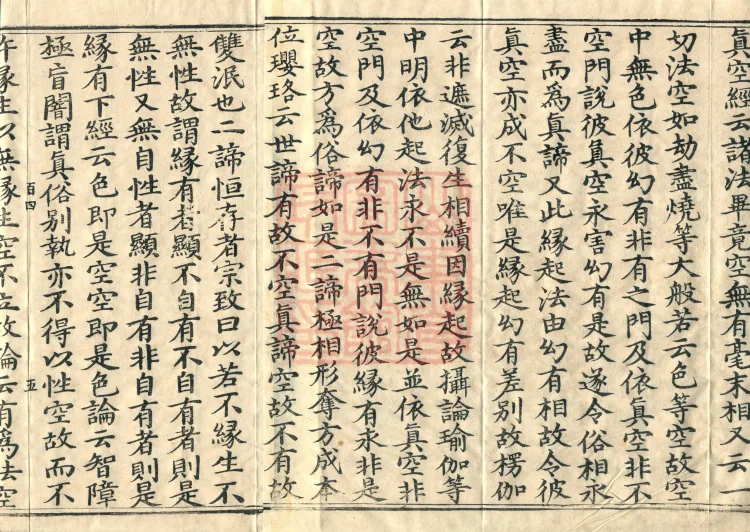 真空經云諸法畢竟空無有毫末相又云一
切法空如劫盡燒等大般若云色等空故空
中無色依彼幻有非有之門及依真空非不
空門說彼真空永害幻有是故遂令俗相永
盡而為真諦又此緣起法由幻有相故令彼
真空亦成不空唯是緣起幻有差別故楞伽
云非遮滅復生相續因緣起故攝論瑜伽等
中明依他起法永不是無如是並依真空非
空門及依幻有非不有門說彼緣有永非是
空故方為俗諦如是二諦極相形奪方成本
位瓔珞云世諦有故不空真諦空故不有故
雙泯也二諦恒存者宗致曰以若不緣生不
無性故謂緣有者顯不自有不自有者則是
無性又無自性者顯非自有非自有者則是
緣有下經云色即是空空即是色論云智障
極盲闇謂真俗別執亦不得以性空故而不
許緣生以無緣生空不立故論云有為法空
百四
五